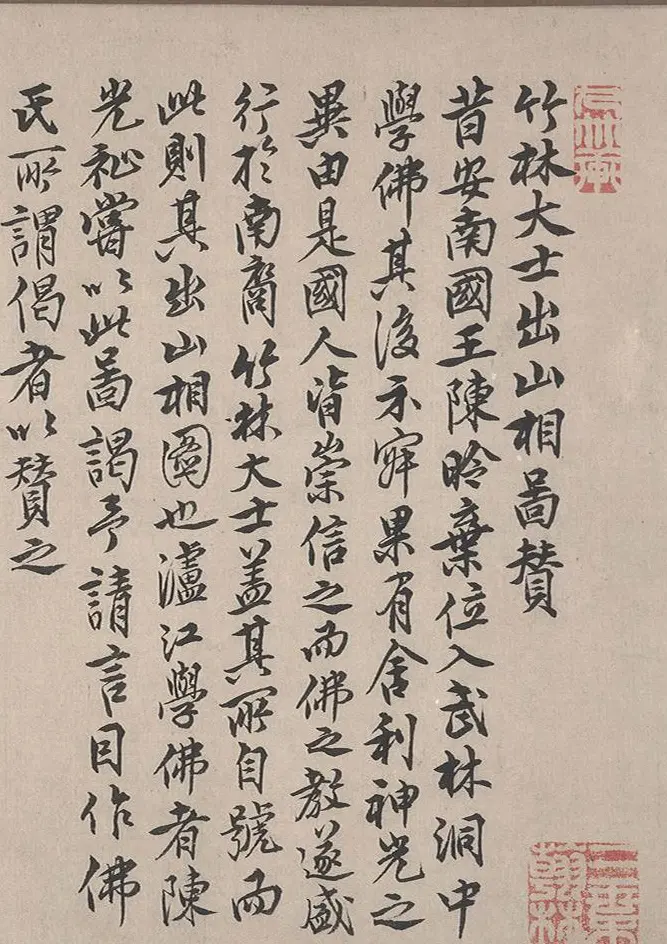 竹林大士出山相啚賛
昔安南國王陳昤棄位入武林洞中
學佛其後示寂果有舍利神光之
異由是國人皆崇信之而佛之教遂盛
行於南裔竹林大士盖其所自號而
此則其出山相圖也瀘江學佛者陳
光祉嘗以此啚謁予請言因作佛
氏所謂偈者以賛之